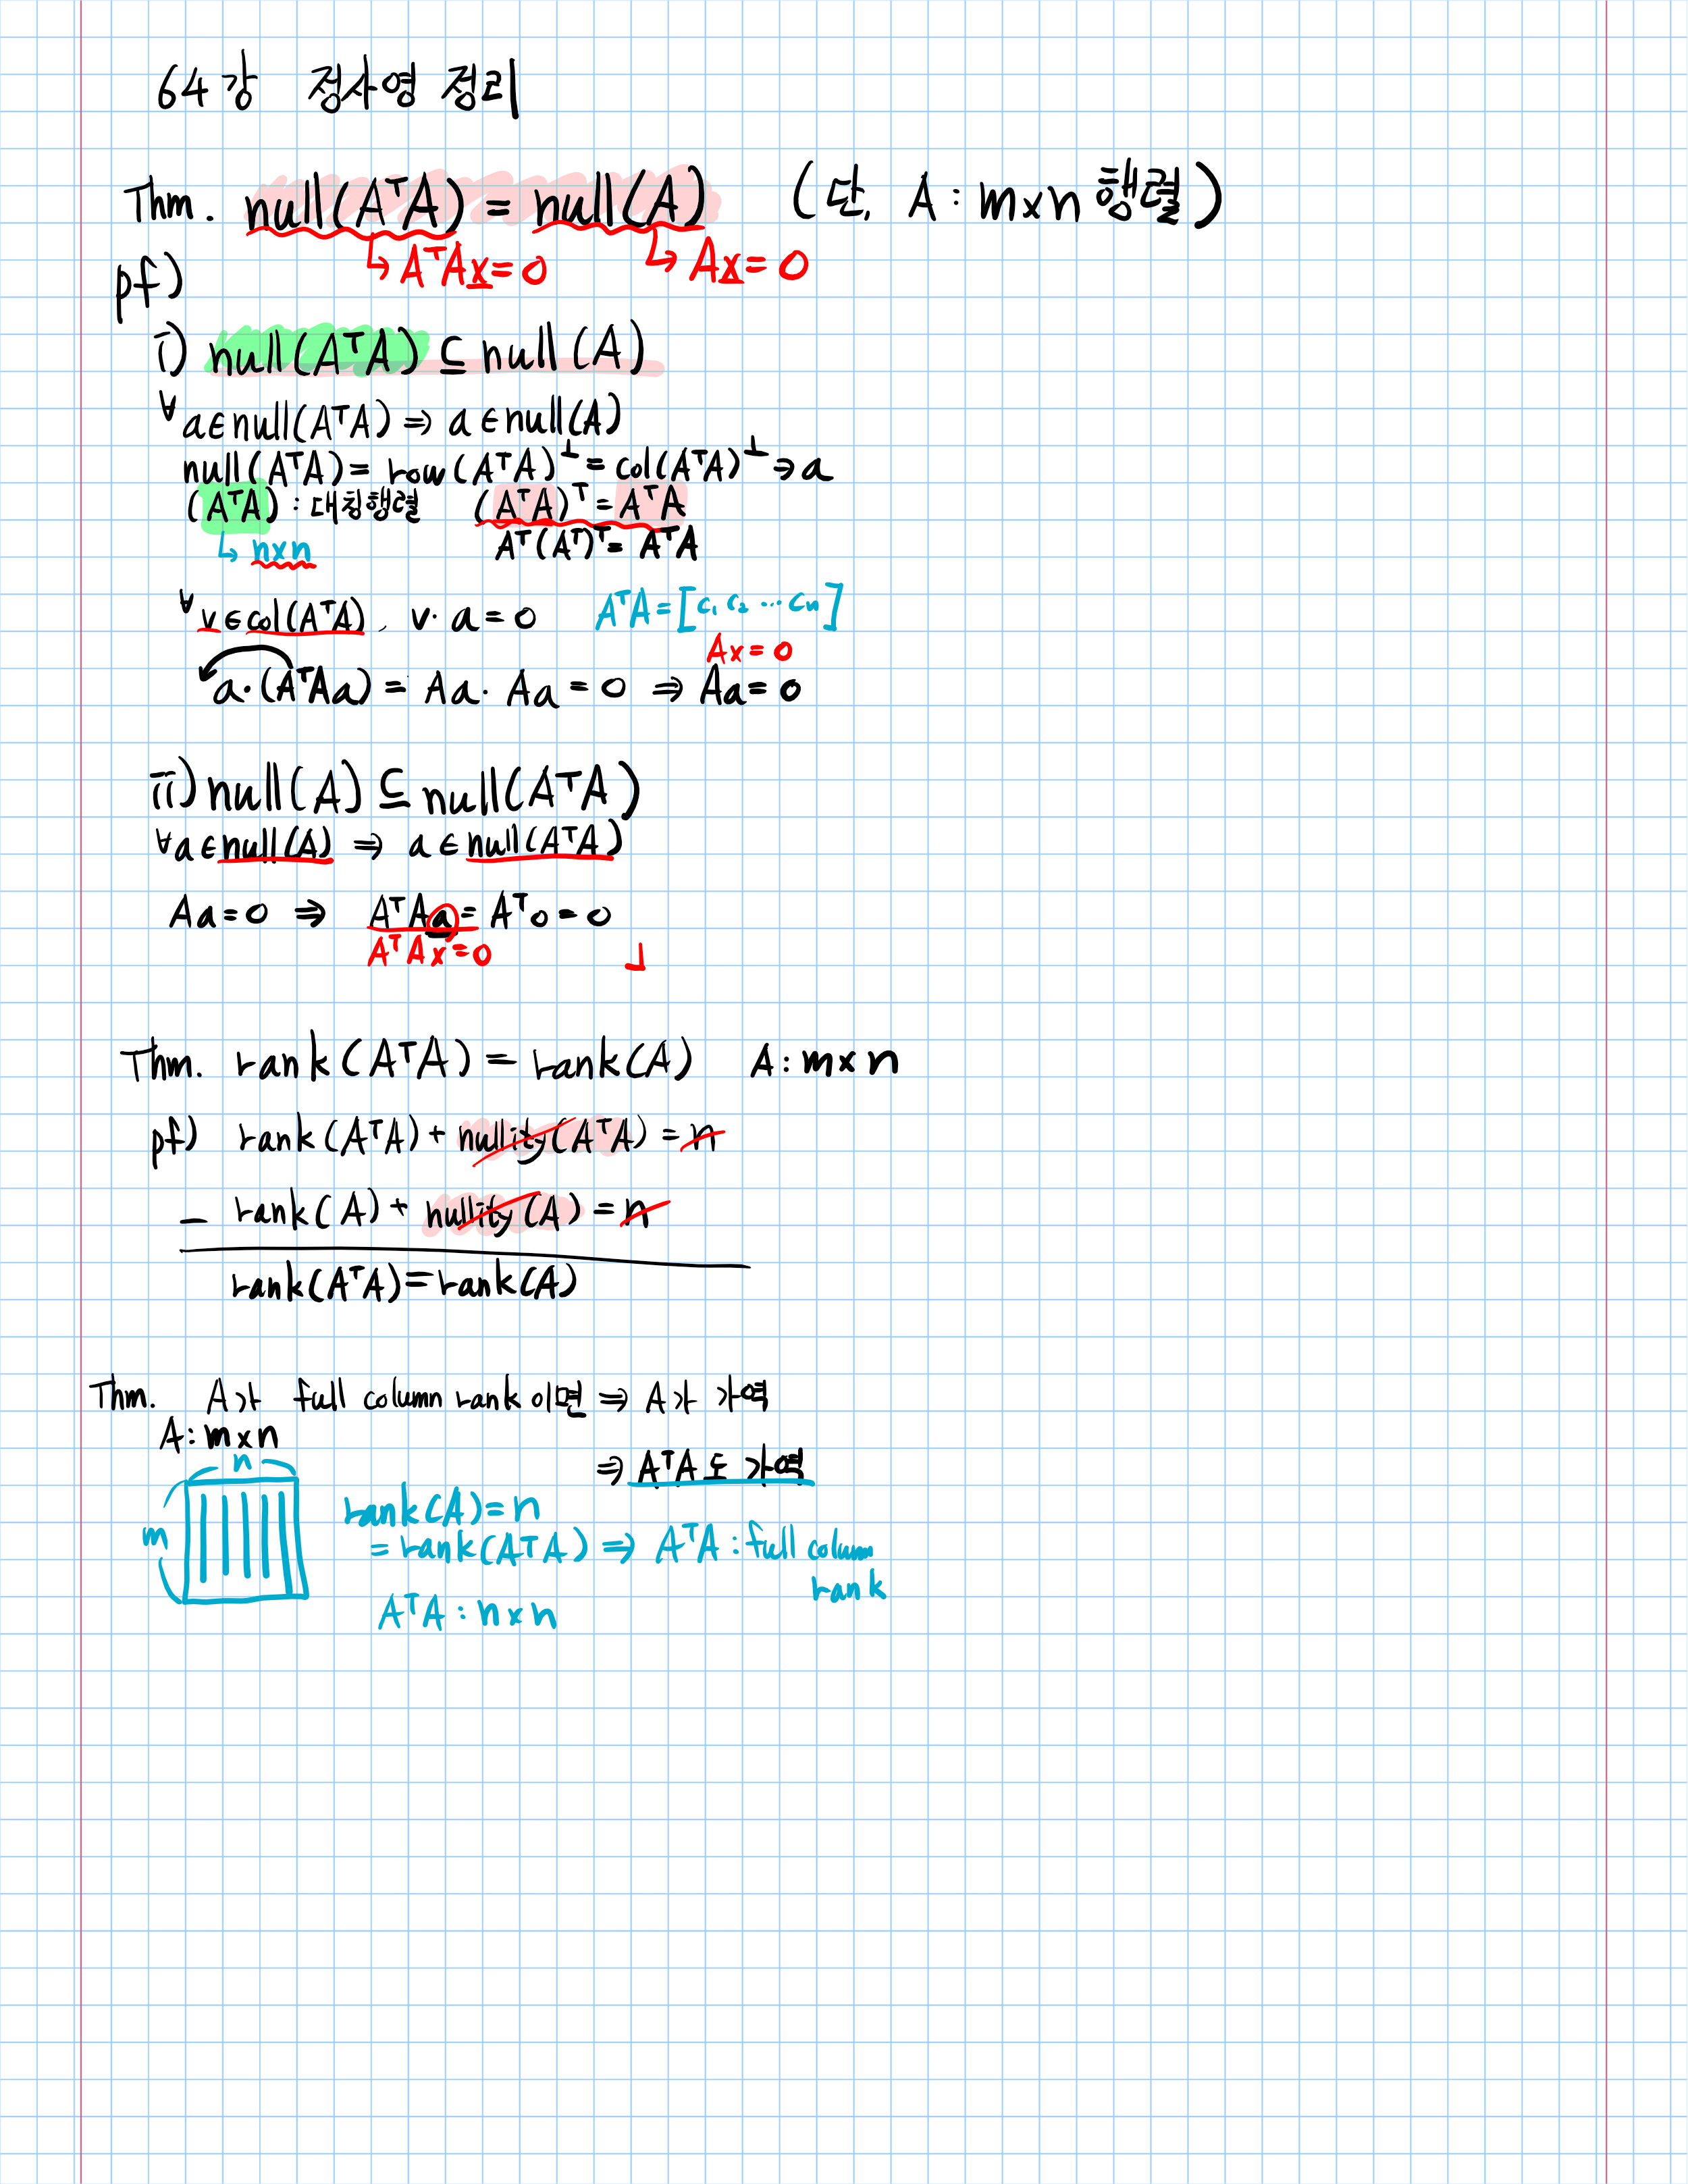 64강 정사영 정리
Thm. null(AᵀA) = null(A) (단, A : m×n 행렬)
↳ AᵀAx = 0 ↳ Ax = 0
pf)
i) null(AᵀA) ⊆ null(A)
∀a∈null(AᵀA) ⇒ a∈null(A)
null(AᵀA) = row(AᵀA)^⊥ = col(AᵀA)^⊥ ⇒ a
(AᵀA) : 대칭행렬 (AᵀA)ᵀ = AᵀA
↳ n×n Aᵀ(Aᵀ)ᵀ = AᵀA
∀v∈col(AᵀA), v·a = 0 AᵀA = [c₁ c₂ ⋯ cₙ]
Ax = 0
a·(AᵀAa) = Aa·Aa = 0 ⇒ Aa = 0
ii) null(A) ⊆ null(AᵀA)
∀a∈null(A) ⇒ a∈null(AᵀA)
Aa = 0 ⇒ AᵀAa = Aᵀ0 = 0
AᵀAx = 0 ┘
Thm. rank(AᵀA) = rank(A) A : m×n
pf) rank(AᵀA) + nullity(AᵀA) = n
− rank(A) + nullity(A) = n
rank(AᵀA) = rank(A)
Thm. A가 full column rank 이면 ⇒ A가 가역
A : m×n
⇒ AᵀA도 가역
n
m
rank(A) = n
= rank(AᵀA) ⇒ AᵀA : full column
rank
AᵀA : n×n